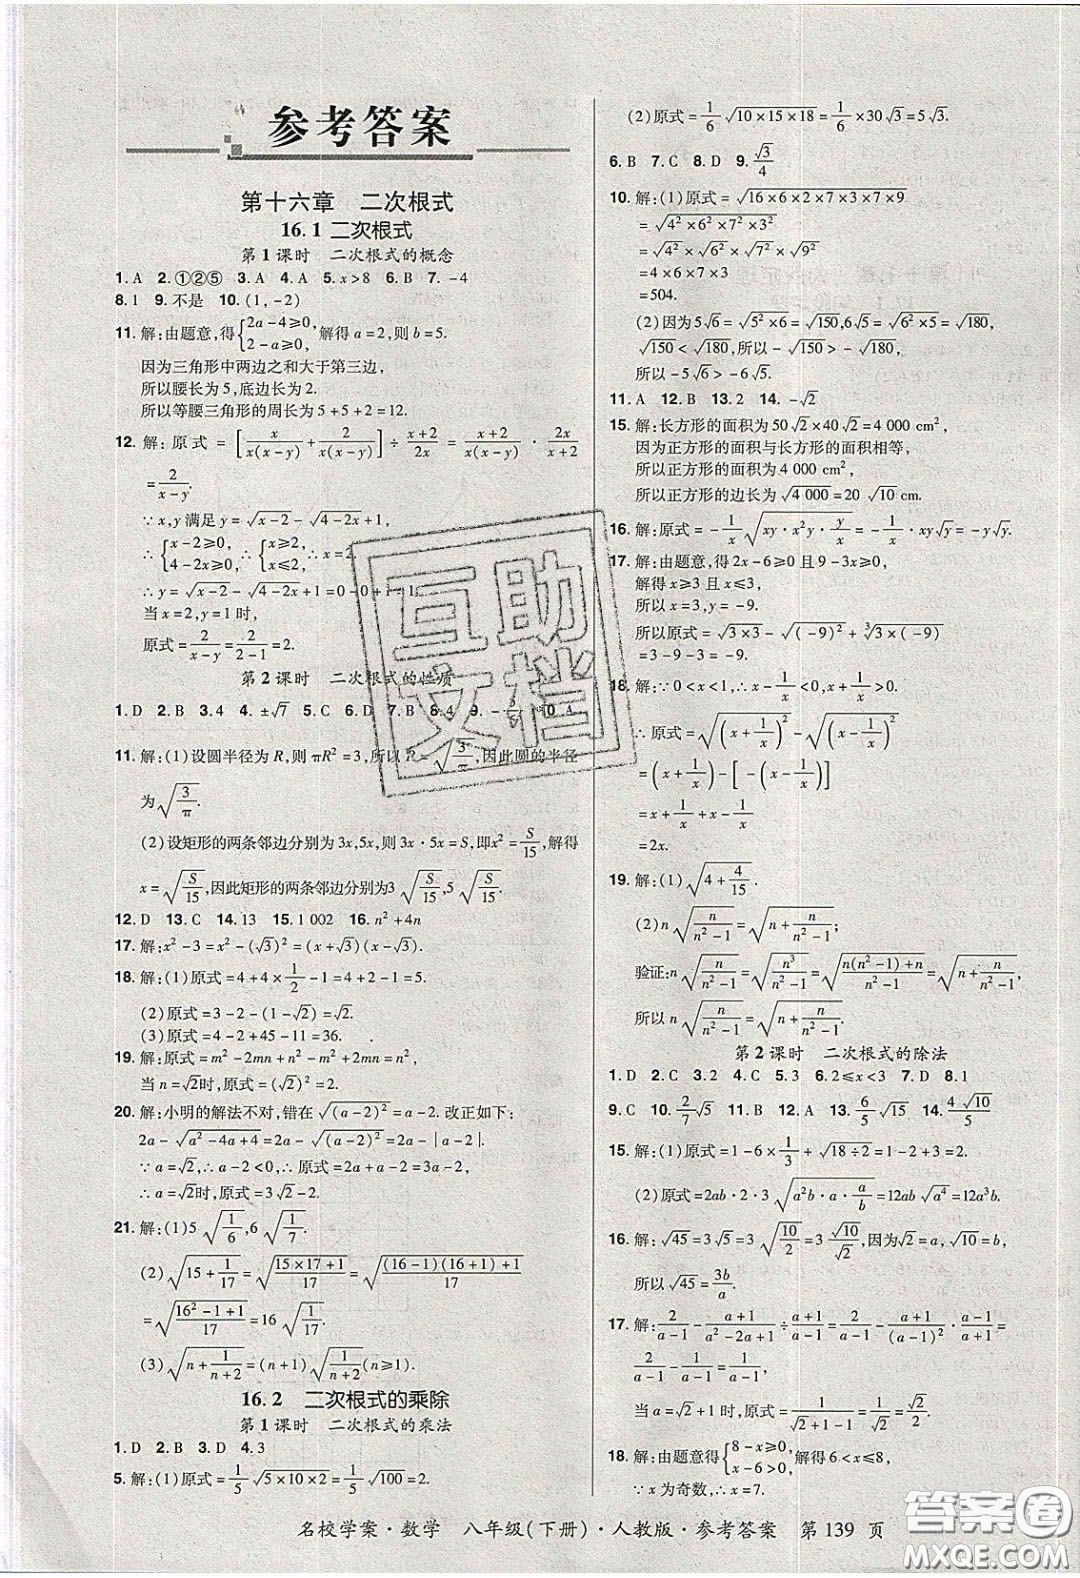 参考答案
第十六章 二次根式
16.1 二次根式
第1课时 二次根式的概念
1. A 2. ①②⑤ 3. A 4. A 5. x>8 6. B 7. -4
8. 1 9. 不是 10. (1,-2)
11. 解:由题意,得{2a-4≥0, 2-a≥0, 解得a=2,则b=5.
因为三角形中两边之和大于第三边,
所以腰长为5,底边长为2.
所以等腰三角形的周长为5+5+2=12.
12. 解:原式=[x/(x(x-y))+2/(x(x-y))]÷(x+2)/2x=(x+2)/(x(x-y))·2x/(x+2)
=2/(x-y).
∵x,y满足y=√(x-2)-√(4-2x)+1,
∴{x-2≥0, 4-2x≥0, ∴{x≥2, x≤2, ∴x=2
∴y=√(x-2)-√(4-2x)+1=0-0+1=1.
当x=2,y=1时,
原式=2/(x-y)=2/(2-1)=2.
第2课时 二次根式的性质
1. D 2. B 3. 4 4. ±√7 5. C 6. D 7. B 8. 4 9. 10. A
11. 解:(1)设圆半径为R,则πR²=3,所以R=√(3/π),因此圆的半径
为√(3/π).
(2)设矩形的两条邻边分别为3x,5x,则3x·5x=S,即x²=S/15,解得
x=√(S/15),因此矩形的两条邻边分别为3√(S/15),5√(S/15).
12. D 13. C 14. 13 15. 1 002 16. n²+4n
17. 解:x²-3=x²-(√3)²=(x+√3)(x-√3).
18. 解:(1)原式=4+4×1/2-1=4+2-1=5.
(2)原式=3-2-(1-√2)=√2.
(3)原式=4-2+45-11=36.
19. 解:原式=m²-2mn+n²-m²+2mn=n².
当n=√2时,原式=(√2)²=2.
20. 解:小明的解法不对,错在√(a-2)²=a-2.改正如下:
2a-√(a²-4a+4)=2a-√(a-2)²=2a-|a-2|.
∵a=√2,∴a-2<0.∴原式=2a+a-2=3a-2.
∴a=√2时,原式=3√2-2.
21. 解:(1)5√(1/6),6√(1/7).
(2)√(15+1/17)=√((15×17+1)/17)=√(((16-1)(16+1)+1)/17)
=√((16²-1+1)/17)=16√(1/17).
(3)√(n+1/(n+2))=(n+1)√(1/(n+2))(n≥1).
16.2 二次根式的乘除
第1课时 二次根式的乘法
1. D 2. B 3. D 4. 3
5. 解:(1)原式=1/5√(5×10×2)=1/5√100=2.
(2)原式=1/6√(10×15×18)=1/6×30√3=5√3.
6. B 7. C 8. D 9. √3/4
10. 解:(1)原式=√(16×6×2×7×3×7×9)
=√(4²×6²×7²×3²)
=√4²×√6²×√7²×√3²
=4×6×7×3
=504.
(2)因为5√6=√(5²×6)=√150,6√5=√(6²×5)=√180,
√150<√180,所以-√150>-√180.
所以-5√6>-6√5.
11. A 12. B 13. 2 14. -√2
15. 解:长方形的面积为50√2×40√2=4 000 cm²,
因为正方形的面积与长方形的面积相等,
所以正方形的面积为4 000 cm²,
所以正方形的边长为√4 000=20√10 cm.
16. 解:原式=-1/x√(xy·x²y·y/x)=-1/x·xy√y=-y√y.
17. 解:由题意,得2x-6≥0且9-3x≥0,
解得x≥3且x≤3,
所以x=3,y=-9.
所以原式=√(3×3)-√(-9)²+∛(3×(-9))
=3-9-3=-9.
18. 解:∵0<x<1,∴x-1/x<0,x+1/x>0.
∴原式=√(x+1/x)²-√(x-1/x)²
=(x+1/x)-[-(x-1/x)]
=x+1/x+x-1/x
=2x.
19. 解:(1)√(4+4/15).
(2)n√(n/(n²-1))=√(n+n/(n²-1));
验证:n√(n/(n²-1))=√(n³/(n²-1))=√((n(n²-1)+n)/(n²-1))=√(n+n/(n²-1)),
所以n√(n/(n²-1))=√(n+n/(n²-1)).
第2课时 二次根式的除法
1. D 2. C 3. C 4. C 5. D 6. 2≤x<3 7. D 8. 1
9. C 10. 2/7√5 11. B 12. A 13. 6/5√15 14. 4√10/5
15. 解:(1)原式=1-6×1/3+√(18÷2)=1-2+3=2.
(2)原式=2ab·2·3√(a²b·a·a/b)=12ab√a⁴=12a³b.
16. 解:√45=3√5=3√(10/2)=3√10/√2,因为√2=a,√10=b,
所以√45=3b/a.
17. 解:2/(a-1)-(a+1)/(a²-2a+1)÷(a+1)/(a-1)=2/(a-1)-(a+1)/(a-1)²·(a-1)/(a+1)=
2/(a-1)-1/(a-1)=1/(a-1).
当a=√2+1时,原式=1/(√2+1-1)=1/√2=√2/2.
18. 解:由题意得{8-x≥0, x-6>0, 解得6<x≤8,
∵x为奇数,∴x=7.
互助
文档
名校学案·数学 八年级(下册)·人教版·参考答案 第139页
答案圈
MXQE.COM